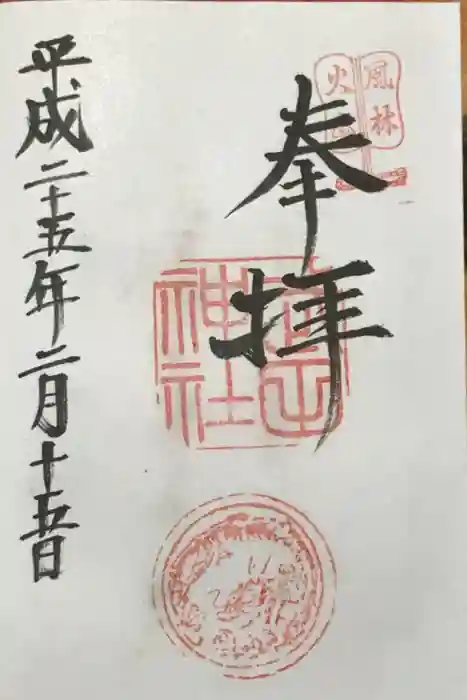 風林
火山
奉拝
神社
平成二十五年二月十五日